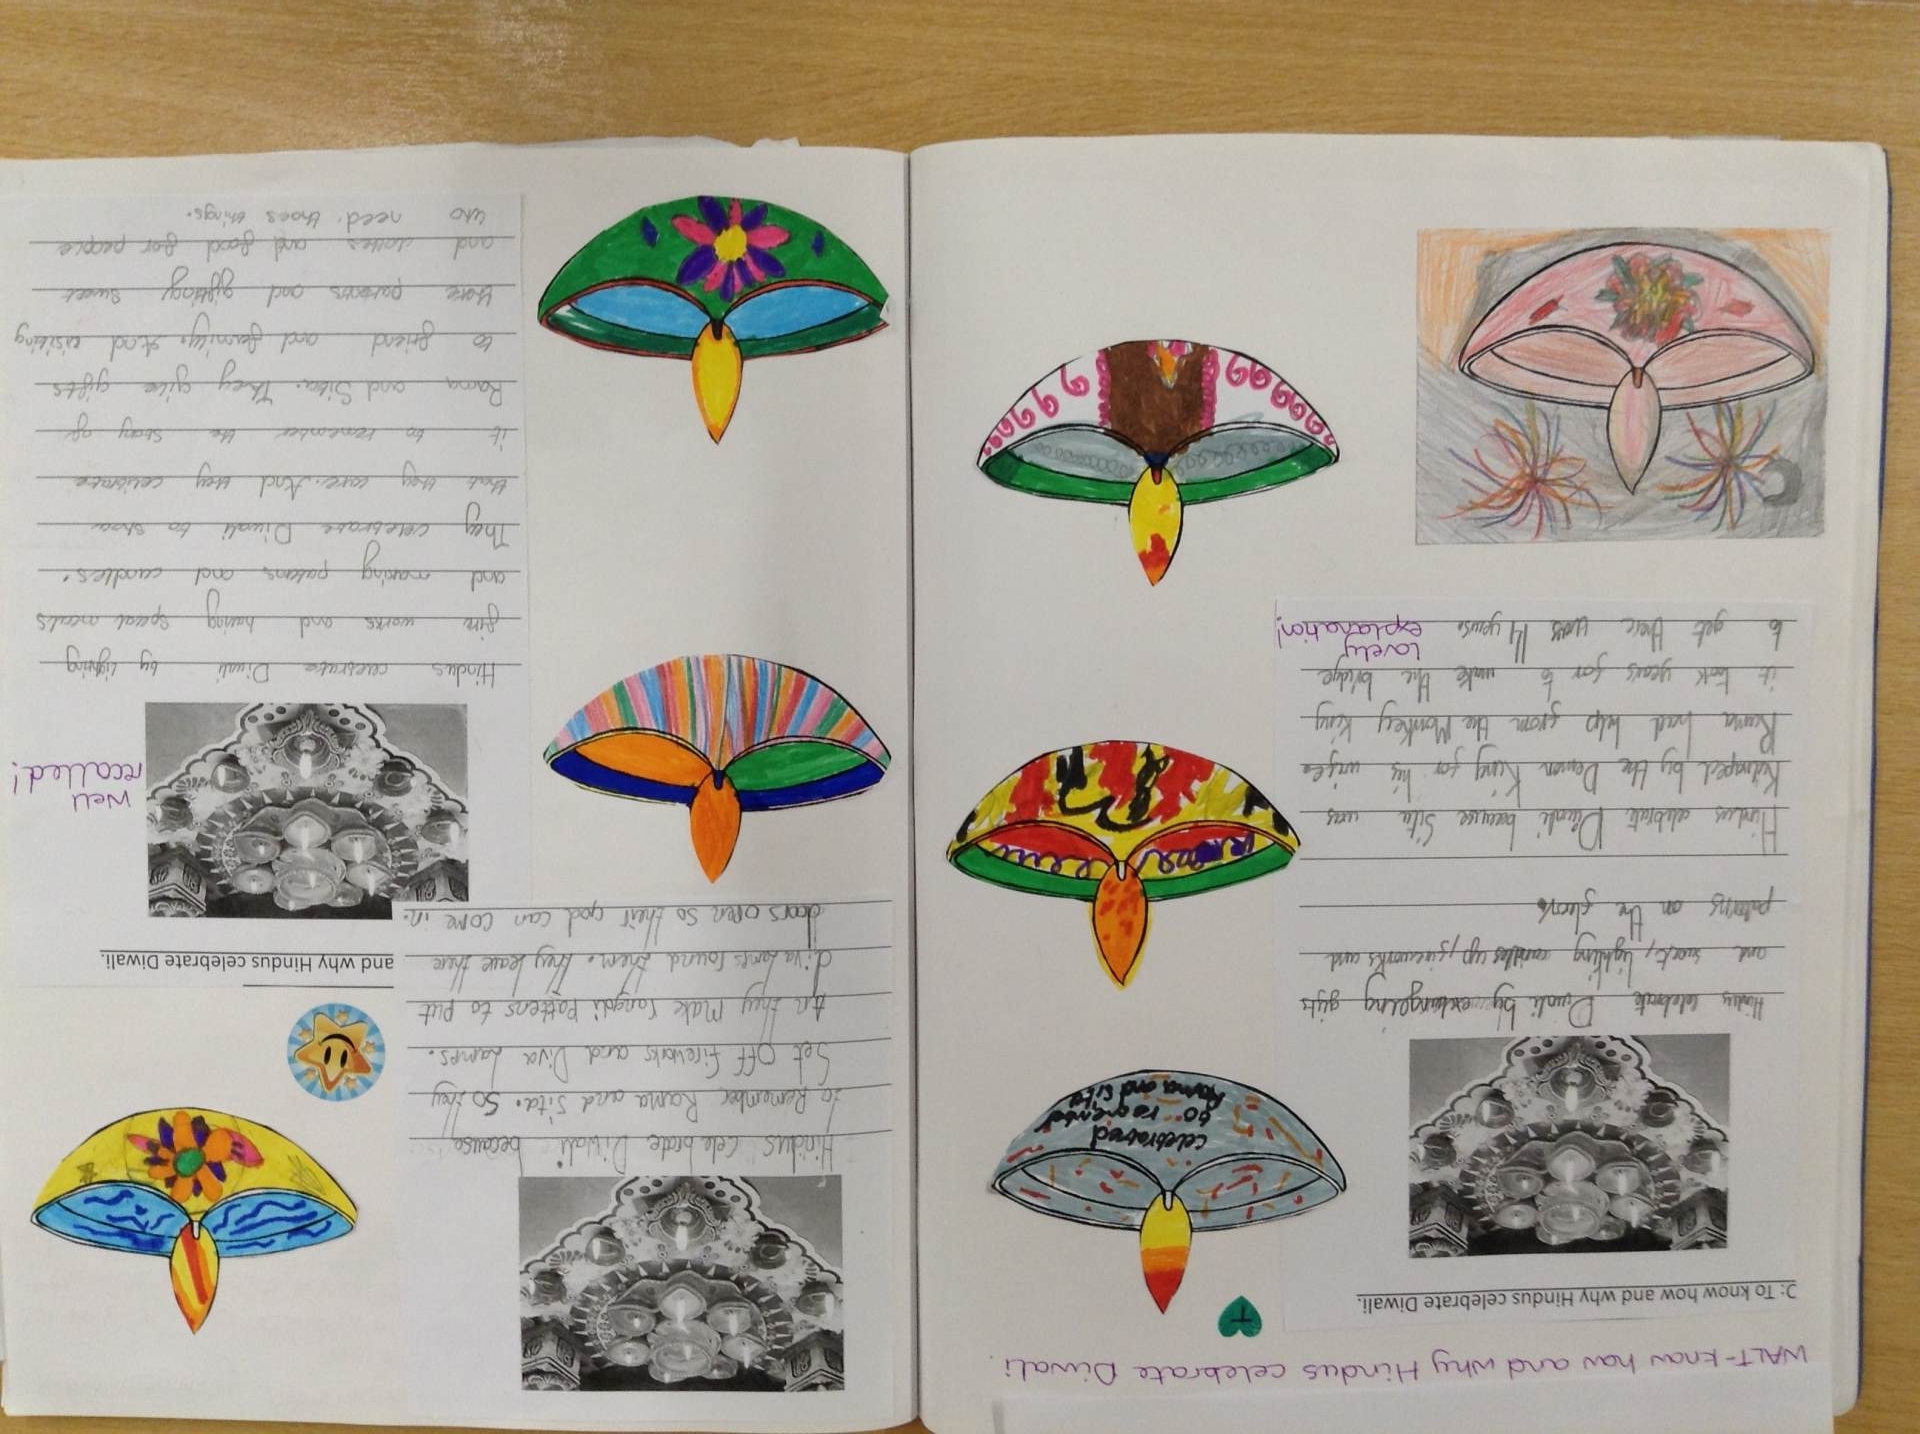 WALT-know how and why Hindus celebrate Diwali.
T
O: To know how and why Hindus celebrate Diwali.
Hindus celebrate Diwali by exhangeing gifts
and sweets, lighting candles up, fireworks and
patterns on the floor.
Hindus celebrate Diwali because Sita was
Kidnaped by the Demon King for his wife.
Rama had help from the Monkey King
it took years for to make the bridge
to get there was 14 years.
Lovely
explanation!
celebrated
to remember
Rama and Sita
Hindus celebrate Diwali because
to Remember Rama and Sita. So they
Set Off Fireworks and Diva Lamps.
An they Make rangoli Patterns to put
diva Lamps round them. They leave there
doors open so their god can come in.
and why Hindus celebrate Diwali.
Well
recalled!
Hindus celebrate Diwali by lighting
fire works and having special meals
and making patans and candles.
They celebrate Diwali to show
that they care. And they celibrate
it to remember the story of
Rama and Sita. They give gifts
to friend and family. And visiting
there parents and gifting sweet
and clothes and food for people
who need thoes things.